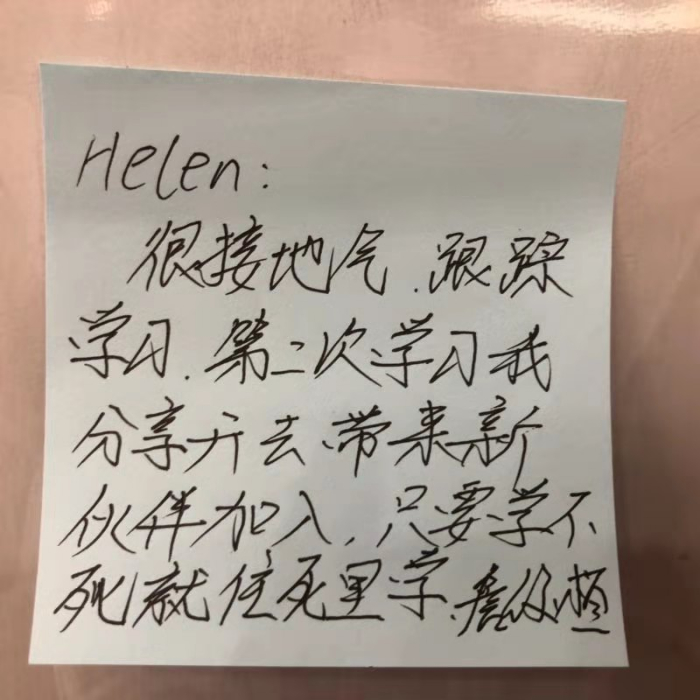 Helen:
很接地气.跟踪
学习.第二次学习我
分享开去.带来新
伙伴加入,只要学不
死就往死里学.